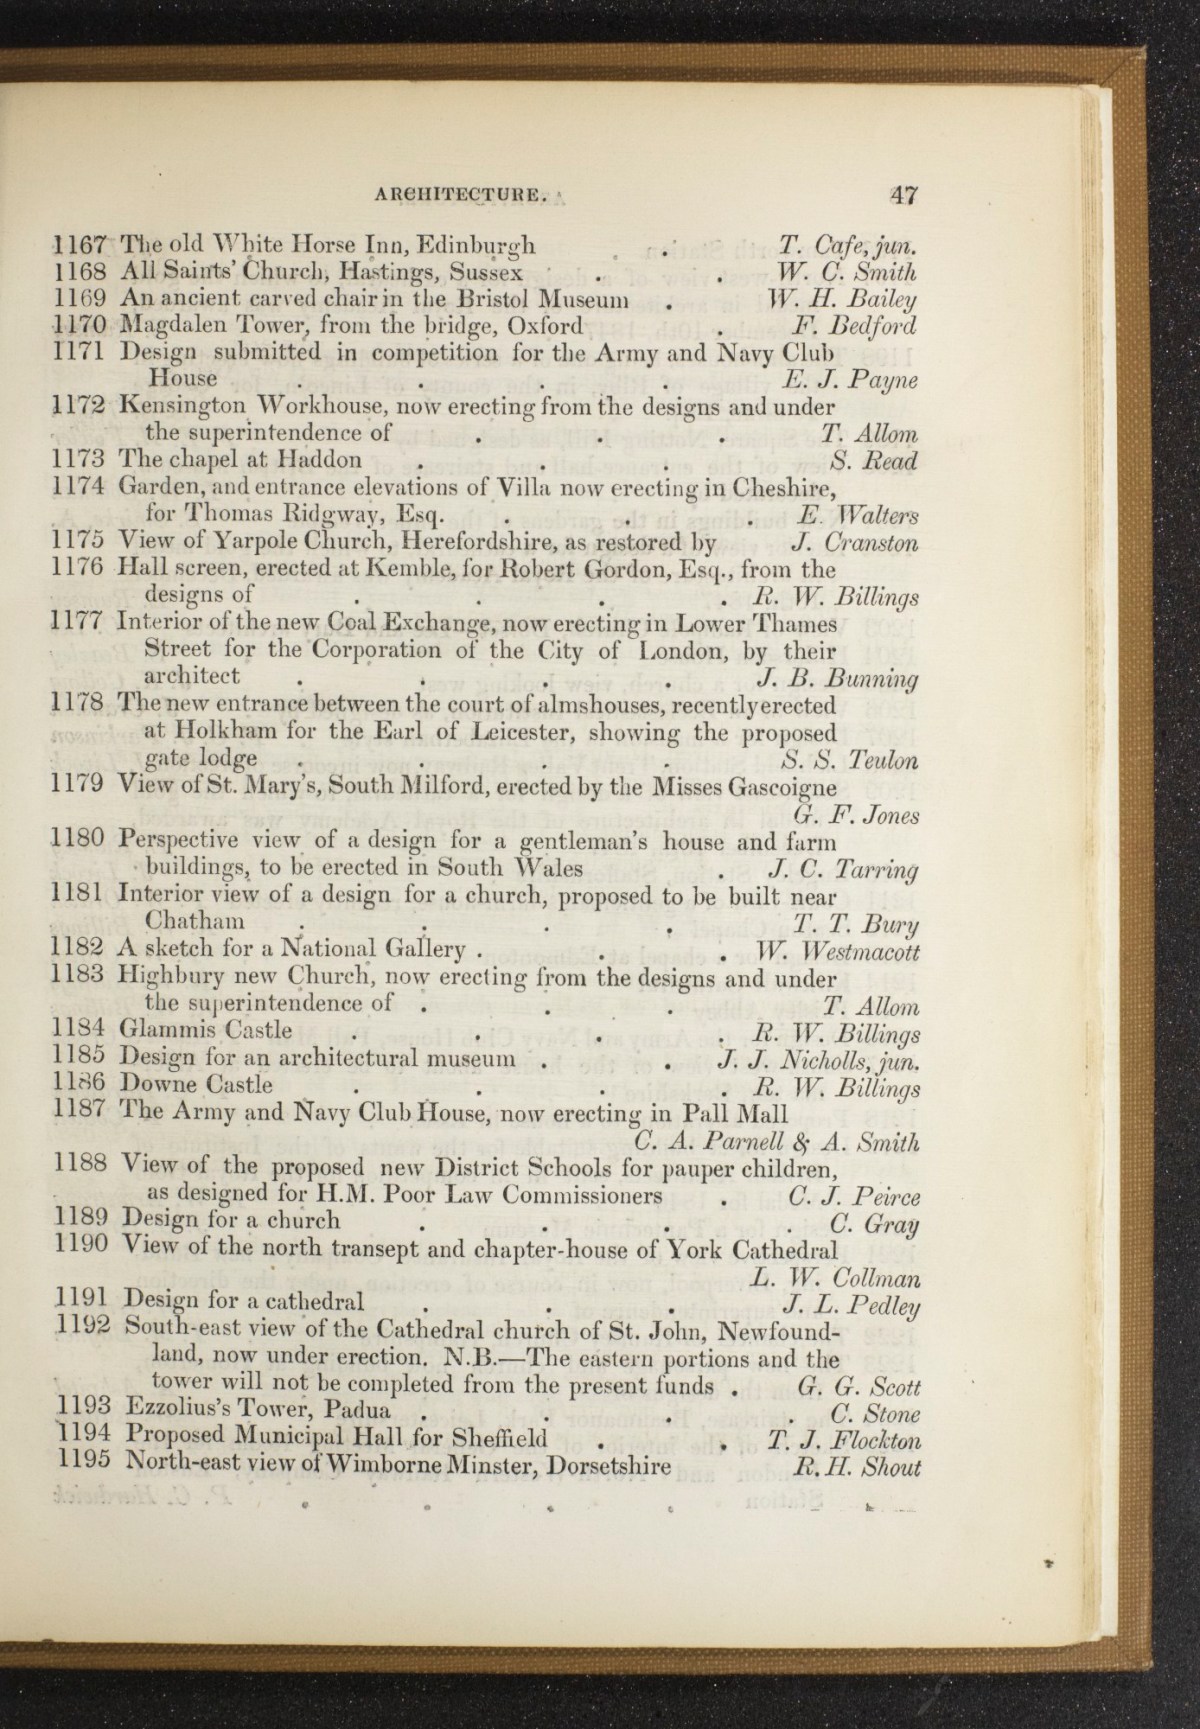 ARCHITECTURE. 47
1167 The old White Horse Inn, Edinburgh . T. Cafe, jun.
1168 All Saints' Church, Hastings, Sussex . . W. C. Smith
1169 An ancient carved chair in the Bristol Museum . W. H. Bailey
1170 Magdalen Tower, from the bridge, Oxford . F. Bedford
1171 Design submitted in competition for the Army and Navy Club
House . . . . E. J. Payne
1172 Kensington Workhouse, now erecting from the designs and under
the superintendence of . . . T. Allom
1173 The chapel at Haddon . . . S. Read
1174 Garden, and entrance elevations of Villa now erecting in Cheshire,
for Thomas Ridgway, Esq. . . . E. Walters
1175 View of Yarpole Church, Herefordshire, as restored by J. Cranston
1176 Hall screen, erected at Kemble, for Robert Gordon, Esq., from the
designs of . . . . R. W. Billings
1177 Interior of the new Coal Exchange, now erecting in Lower Thames
Street for the Corporation of the City of London, by their
architect . . . . J. B. Bunning
1178 The new entrance between the court of almshouses, recently erected
at Holkham for the Earl of Leicester, showing the proposed
gate lodge . . . . S. S. Teulon
1179 View of St. Mary's, South Milford, erected by the Misses Gascoigne
G. F. Jones
1180 Perspective view of a design for a gentleman's house and farm
buildings, to be erected in South Wales . J. C. Tarring
1181 Interior view of a design for a church, proposed to be built near
Chatham . . . . T. T. Bury
1182 A sketch for a National Gallery . . . W. Westmacott
1183 Highbury new Church, now erecting from the designs and under
the superintendence of . . . T. Allom
1184 Glammis Castle . . . . R. W. Billings
1185 Design for an architectural museum . . J. J. Nicholls, jun.
1186 Downe Castle . . . . R. W. Billings
1187 The Army and Navy Club House, now erecting in Pall Mall
C. A. Parnell & A. Smith
1188 View of the proposed new District Schools for pauper children,
as designed for H.M. Poor Law Commissioners . C. J. Peirce
1189 Design for a church . . . . C. Gray
1190 View of the north transept and chapter-house of York Cathedral
L. W. Collman
1191 Design for a cathedral . . . J. L. Pedley
1192 South-east view of the Cathedral church of St. John, Newfound-
land, now under erection. N.B.—The eastern portions and the
tower will not be completed from the present funds . G. G. Scott
1193 Ezzolius's Tower, Padua . . . . C. Stone
1194 Proposed Municipal Hall for Sheffield . . T. J. Flockton
1195 North-east view of Wimborne Minster, Dorsetshire R. H. Shout